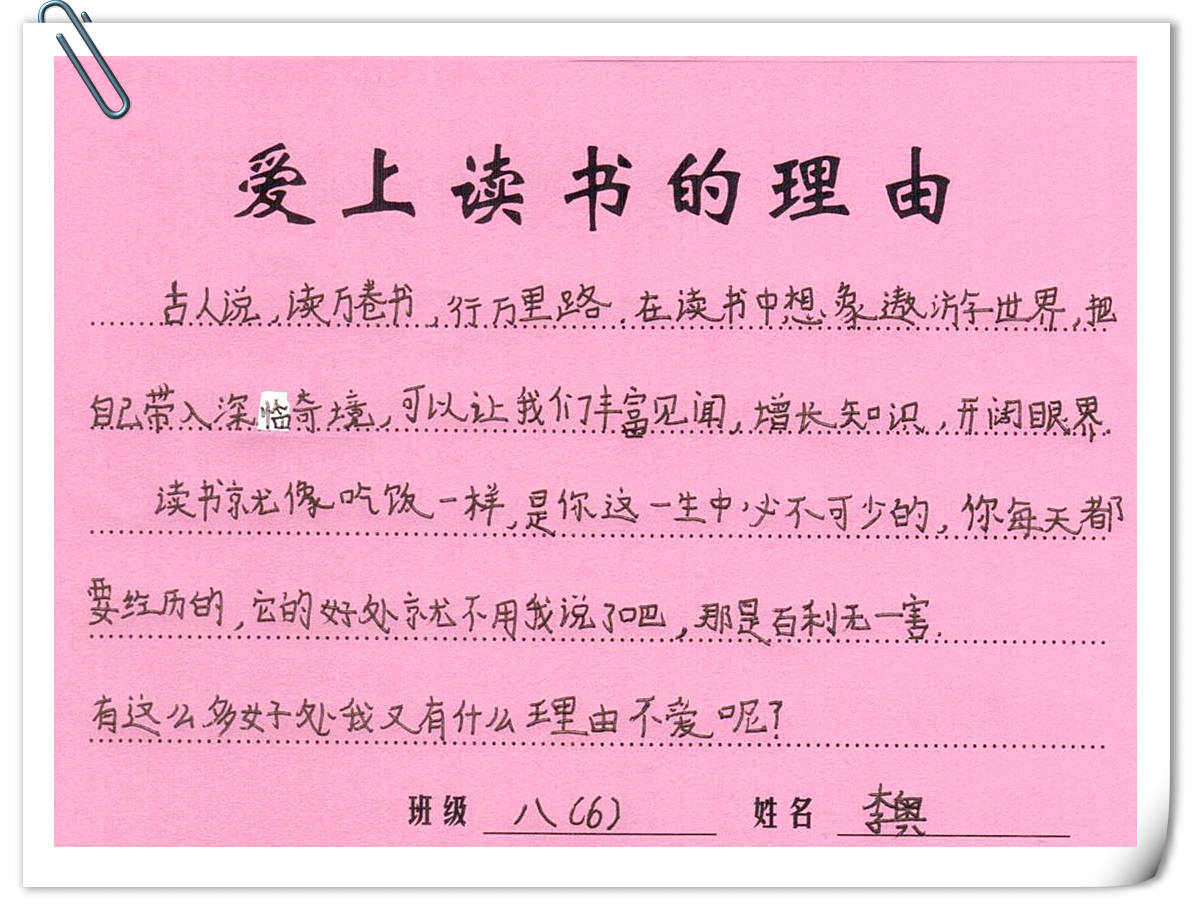 爱上读书的理由
古人说,读万卷书,行万里路.在读书中想象遨游字世界,把
自己带入深临奇境,可以让我们丰富见闻,增长知识,开阔眼界.
读书就像吃饭一样,是你这一生中必不可少的,你每天都
要经历的,它的好处就不用我说了吧,那是百利无一害.
有这么多好处我又有什么理由不爱呢?
班级 八(6) 姓名 李奥